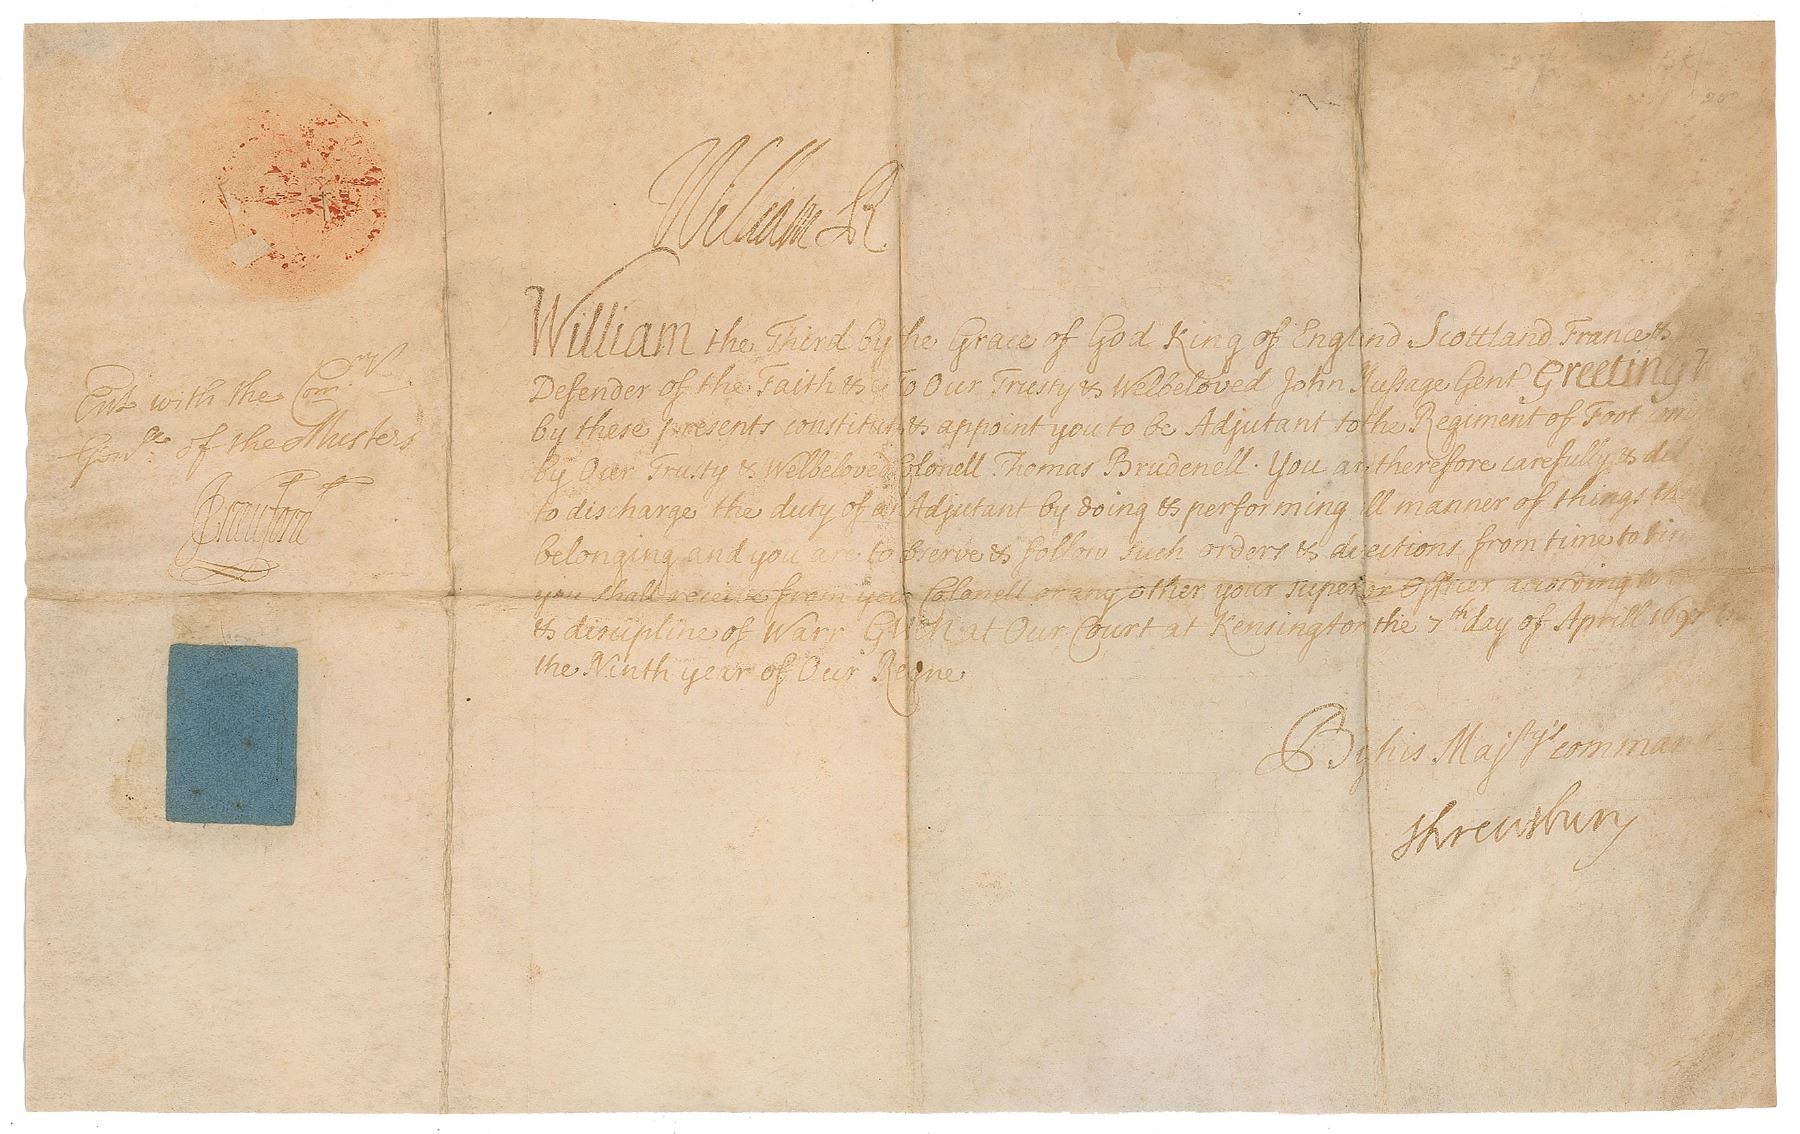 William R
William the Third by the Grace of God King of England Scottland France &
Defender of the Faith & To Our Trusty & Welbeloved John Gent Greeting
by these presents constitute & appoint you to be Adjutant to the Regiment of Foot
by Our Trusty & Welbeloved Colonell Thomas Brudenell. You are therefore carefully &
to discharge the duty of Adjutant by doing & performing all manner of things
belonging and you are to observe & follow such orders & directions from time to
you shall receive from your Colonell or any other your superior Officer according to
& discipline of Warr Given at Our Court at Kensington the 7th day of Aprill 1697
the Ninth year of Our Reigne
Ent with the Comry
Genle of the Musters
DCrauford
By his Majtys comman
Shrewsbury